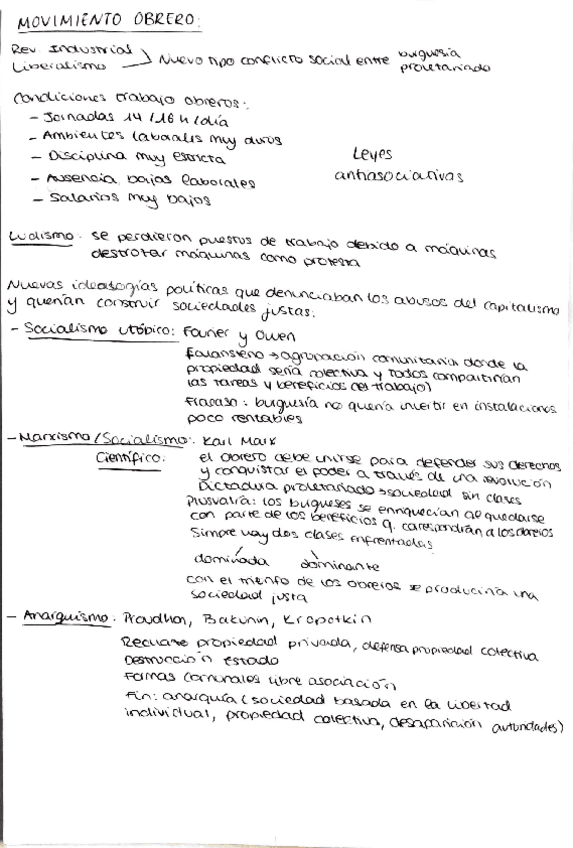 MOVIMIENTO OBRERO:
Rev. Industrial
Liberalismo > Nuevo tipo conflicto social entre burguesía
proletariado
Condiciones trabajo obreros:
- Jornadas 14/16 h/día
- Ambientes laborales muy duros
- Disciplina muy estricta
- Ausencia bajas laborales
- Salarios muy bajos
Leyes
antiasociativas
Ludismo: se perdieron puestos de trabajo debido a máquinas
destrozar máquinas como protesta
Nuevas ideologías políticas que denunciaban los abusos del capitalismo
y querían construir sociedades justas:
- Socialismo utópico: Fourier y Owen
Falansterio → agrupación comunitaria donde la
propiedad sería colectiva y todos compartirían
las tareas y beneficios del trabajo)
Fracaso: burguesía no quería invertir en instalaciones
poco rentables
- Marxismo/Socialismo: Karl Marx
Científico: el obrero debe unirse para defender sus derechos
y conquistar el poder a través de una revolución
Dictadura proletariado → sociedad sin clases
Plusvalía: los burgueses se enriquecían al quedarse
con parte de los beneficios q. corespondían a los obreros
Simpre hay dos clases enfrentadas
dominada dominante
con el triunfo de los obreros se produciría una
sociedad justa
- Anarquismo: Proudhon, Bakunin, Kropotkin
Rechazo propiedad privada, defensa propiedad colectiva
Destrucción estado
Formas comunales libre asociación
Fin: anarquía (sociedad basada en la libertad
individual, propiedad colectiva, desaparición autoridades)